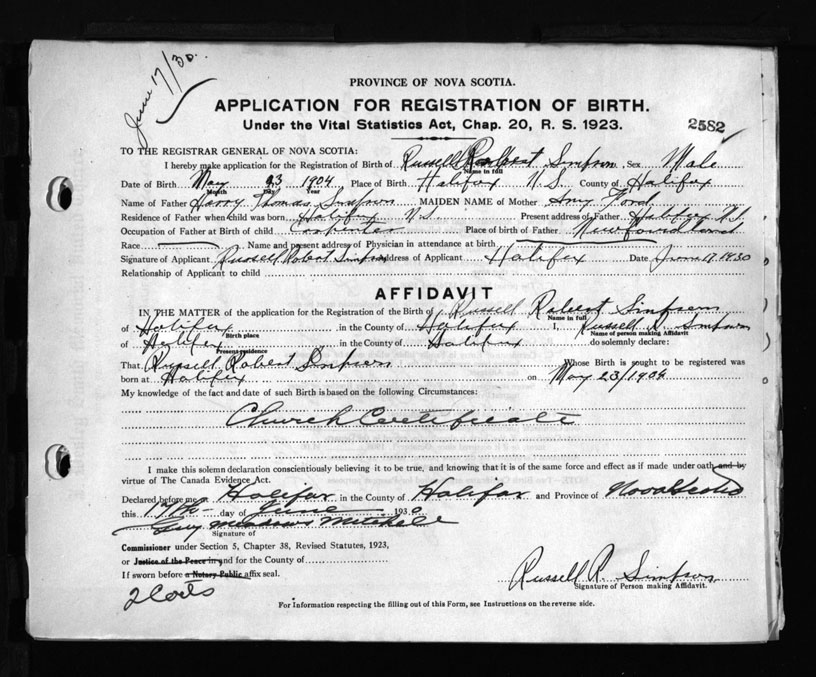 June 17/30.
PROVINCE OF NOVA SCOTIA.
APPLICATION FOR REGISTRATION OF BIRTH.
Under the Vital Statistics Act, Chap. 20, R. S. 1923.
2582
TO THE REGISTRAR GENERAL OF NOVA SCOTIA:
I hereby make application for the Registration of Birth of Russell Robert Simpson Sex Male
Name in full
Date of Birth May 23 1904 Place of Birth Halifax N.S. County of Halifax
Month Day Year
Name of Father Harry Thomas Simpson MAIDEN NAME of Mother Amy Ford
Residence of Father when child was born Halifax N.S. Present address of Father Halifax N.S.
Occupation of Father at Birth of child Carpenter Place of birth of Father Newfoundland
Race Name and present address of Physician in attendance at birth
Signature of Applicant Russell Robert Simpson Address of Applicant Halifax Date June 17 1930
Relationship of Applicant to child
AFFIDAVIT
IN THE MATTER of the application for the Registration of the Birth of Russell Robert Simpson
Name in full
of Halifax in the County of Halifax I, Russell R. Simpson
Birth place Name of person making Affidavit
of Halifax in the County of Halifax do solemnly declare:
Present residence
That Russell Robert Simpson Whose Birth is sought to be registered was
born at Halifax on May 23/1904
My knowledge of the fact and date of such Birth is based on the following Circumstances:
Church Certificate
I make this solemn declaration conscientiously believing it to be true, and knowing that it is of the same force and effect as if made under oath and by
virtue of The Canada Evidence Act.
Declared before me Halifax in the County of Halifax and Province of Nova Scotia
this 17th day of June 1930
Guy Meadows Mitchell
Signature of
Commissioner under Section 5, Chapter 38, Revised Statutes, 1923,
or Justice of the Peace in and for the County of
If sworn before a Notary Public affix seal.
Russell R. Simpson
Signature of Person making Affidavit.
For Information respecting the filling out of this Form, see Instructions on the reverse side.